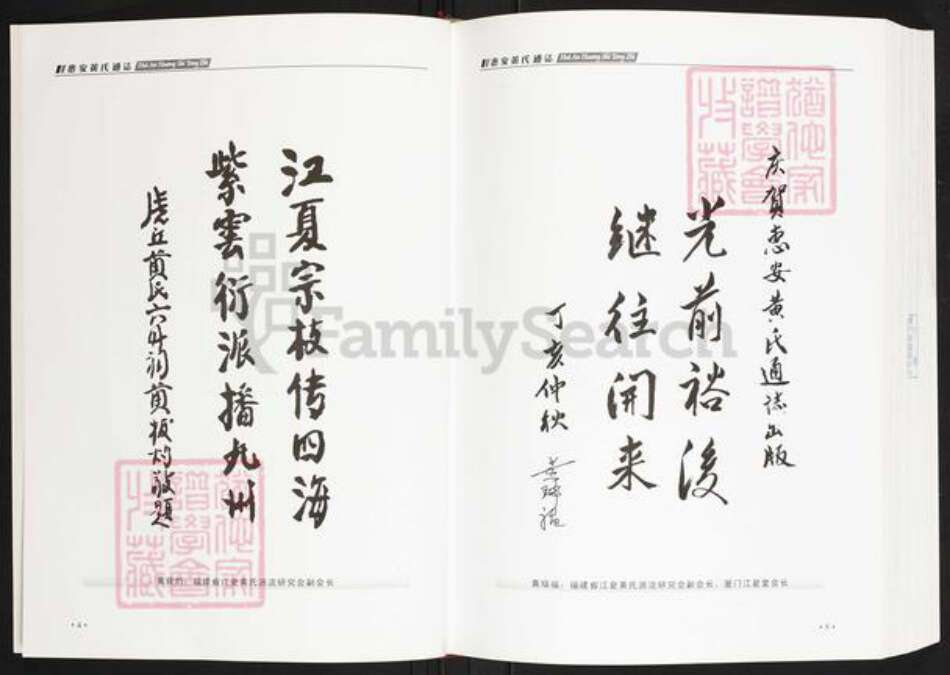 惠安黄氏通志 Hui An Huang Shi Tong Zhi
江夏宗枝传四海
紫雲衍派播九州
虎丘黄氏六件祠黄拔灼敬题
黄拔灼：福建省江夏黄氏源流研究会副会长
·4·
惠安黄氏通志 Hui An Huang Shi Tong Zhi
庆贺惠安黄氏通志出版
光前裕後
继往开来
丁亥仲秋
黄瑞福
黄瑞福：福建省江夏黄氏源流研究会副会长、厦门江夏堂会长
·5·
猶他家
譜學會
收藏
猶他家
譜學會
收藏
FamilySearch